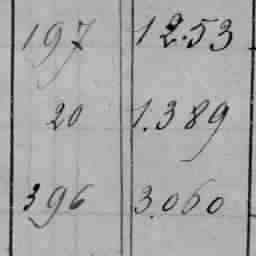 197 12.53
20 1.389
396 3.060